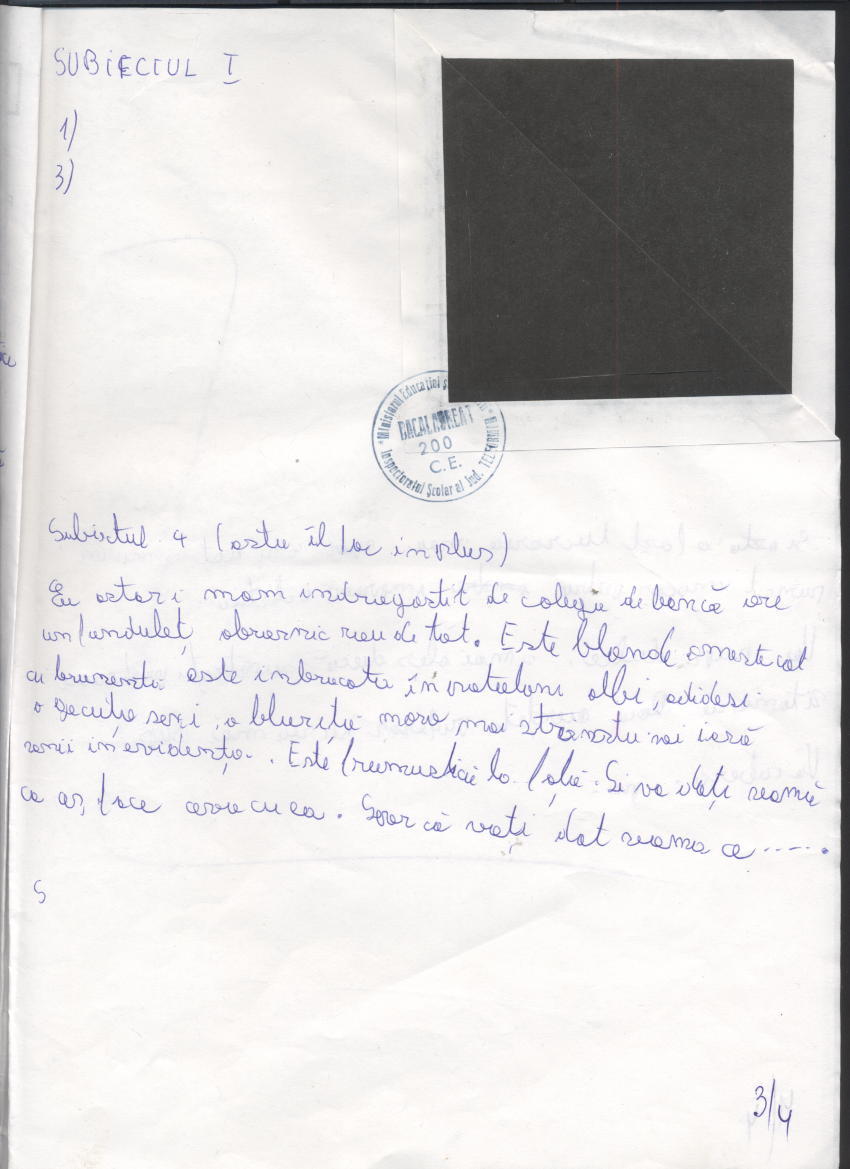 SUBIECTUL I
1)
3)
Ministerul Educației Ș
BACALAUREAT
200
C.E.
Inspectoratul Școlar al Jud. TELEORMAN
Subictul 4 (astu îl fac in plus)
Eu astazi mam indragostit de colega de bancă are
un funduleț obraznic rau de tot. Este blonde amestecat
cu brunenta este inbracata în pataloni albi, adidasi
o gecuța sexi, o bluzița maro mai stranstu nai iasă
sanii in evidența. Este frumusica la fața. Si va dați seama
ce aș face eu cu ea. Sper că vați dat seama ce .....
S
3/4